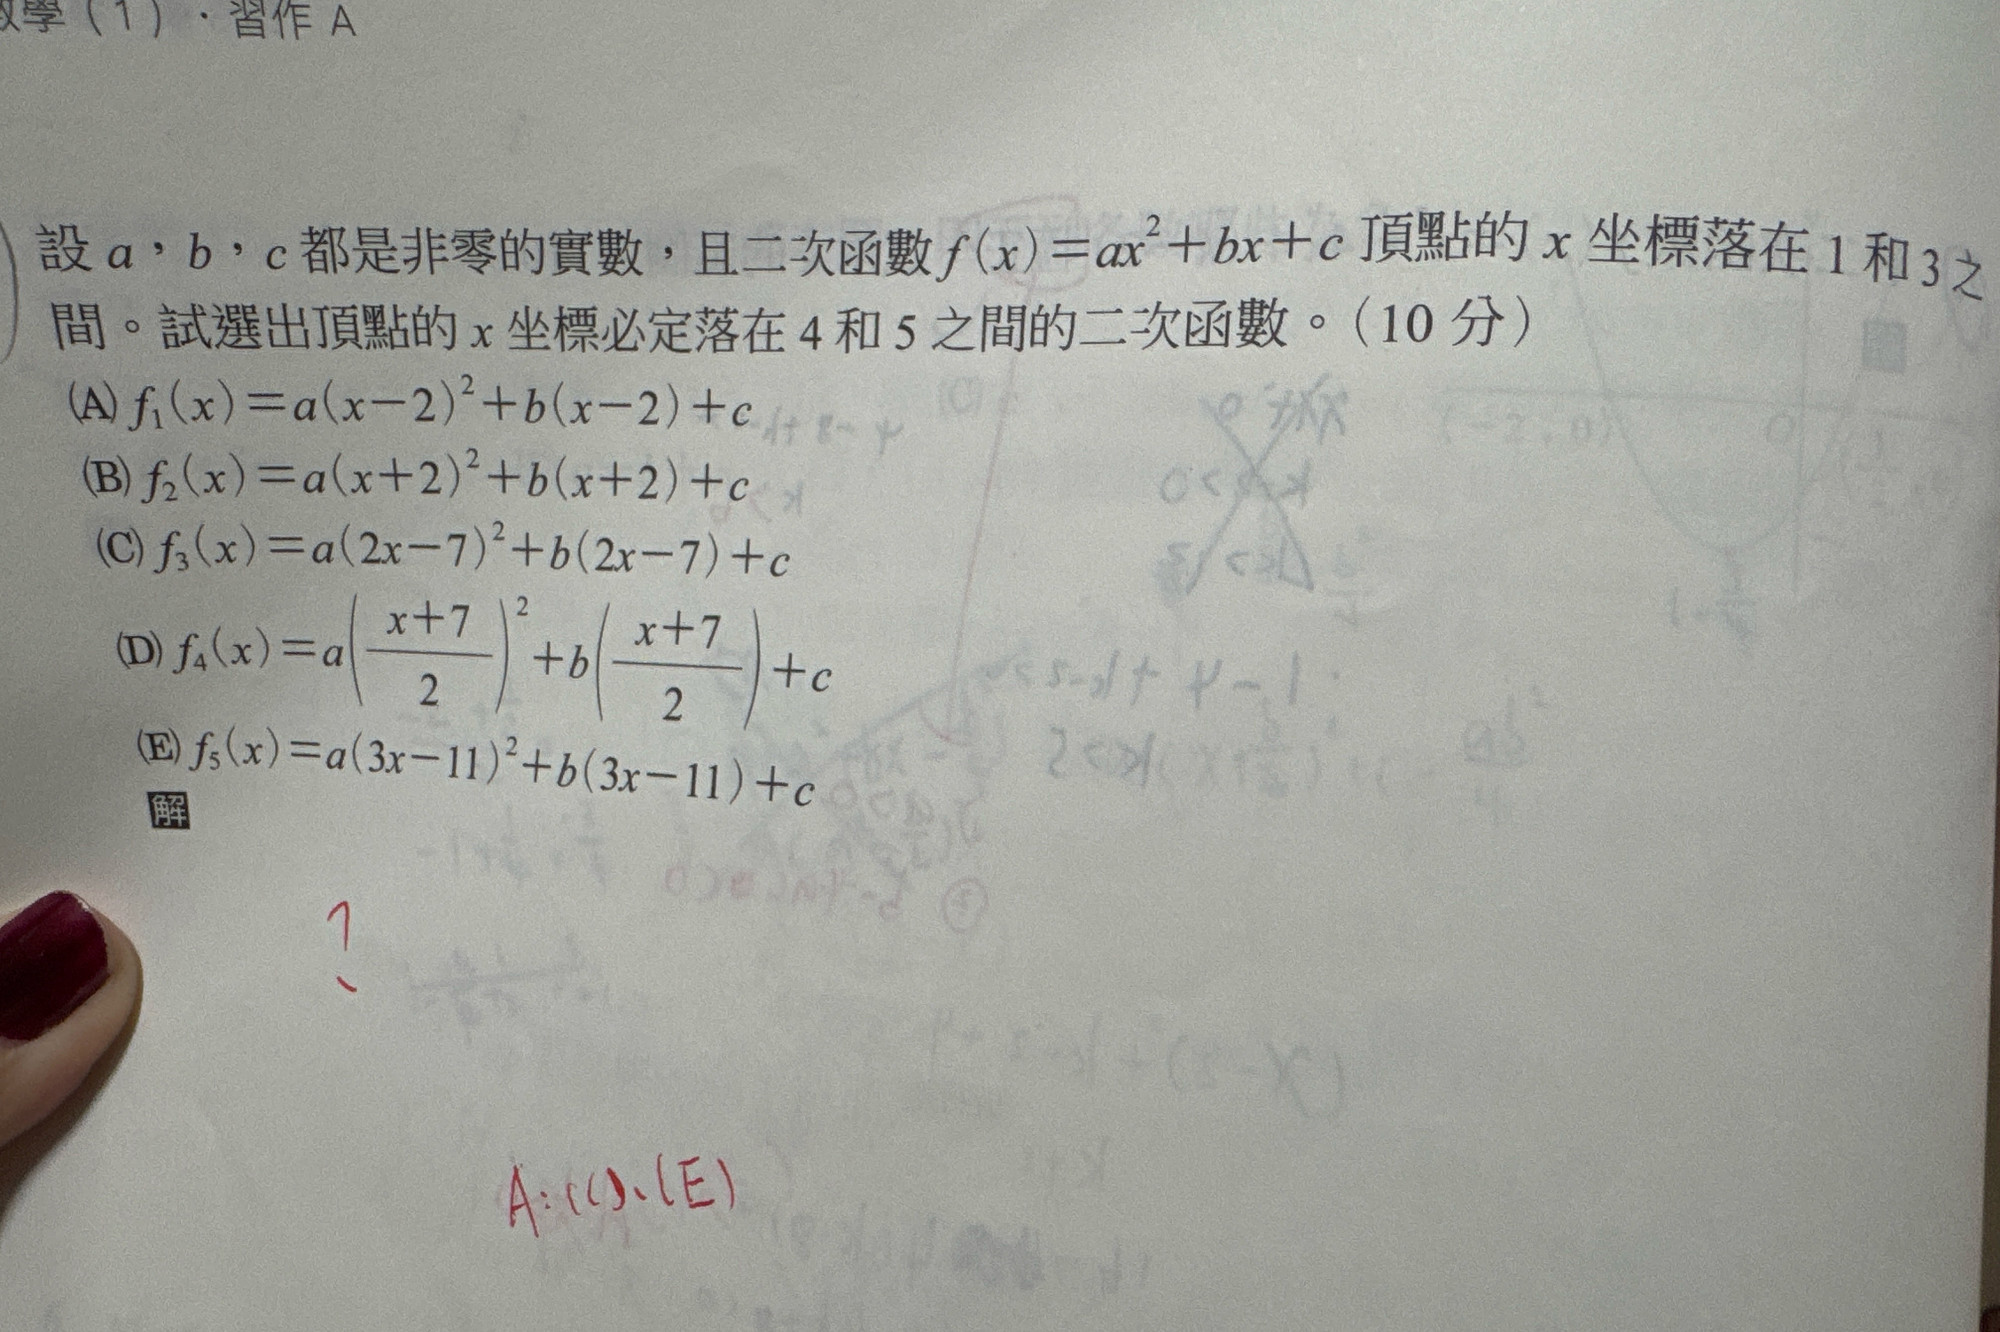 數學（1）·習作 A
設 a，b，c 都是非零的實數，且二次函數 f(x)=ax²+bx+c 頂點的 x 坐標落在 1 和 3 之
間。試選出頂點的 x 坐標必定落在 4 和 5 之間的二次函數。（10 分）
(A) f₁(x)=a(x−2)²+b(x−2)+c
(B) f₂(x)=a(x+2)²+b(x+2)+c
(C) f₃(x)=a(2x−7)²+b(2x−7)+c
(D) f₄(x)=a((x+7)/2)²+b((x+7)/2)+c
(E) f₅(x)=a(3x−11)²+b(3x−11)+c
解
?
A:(C)、(E)